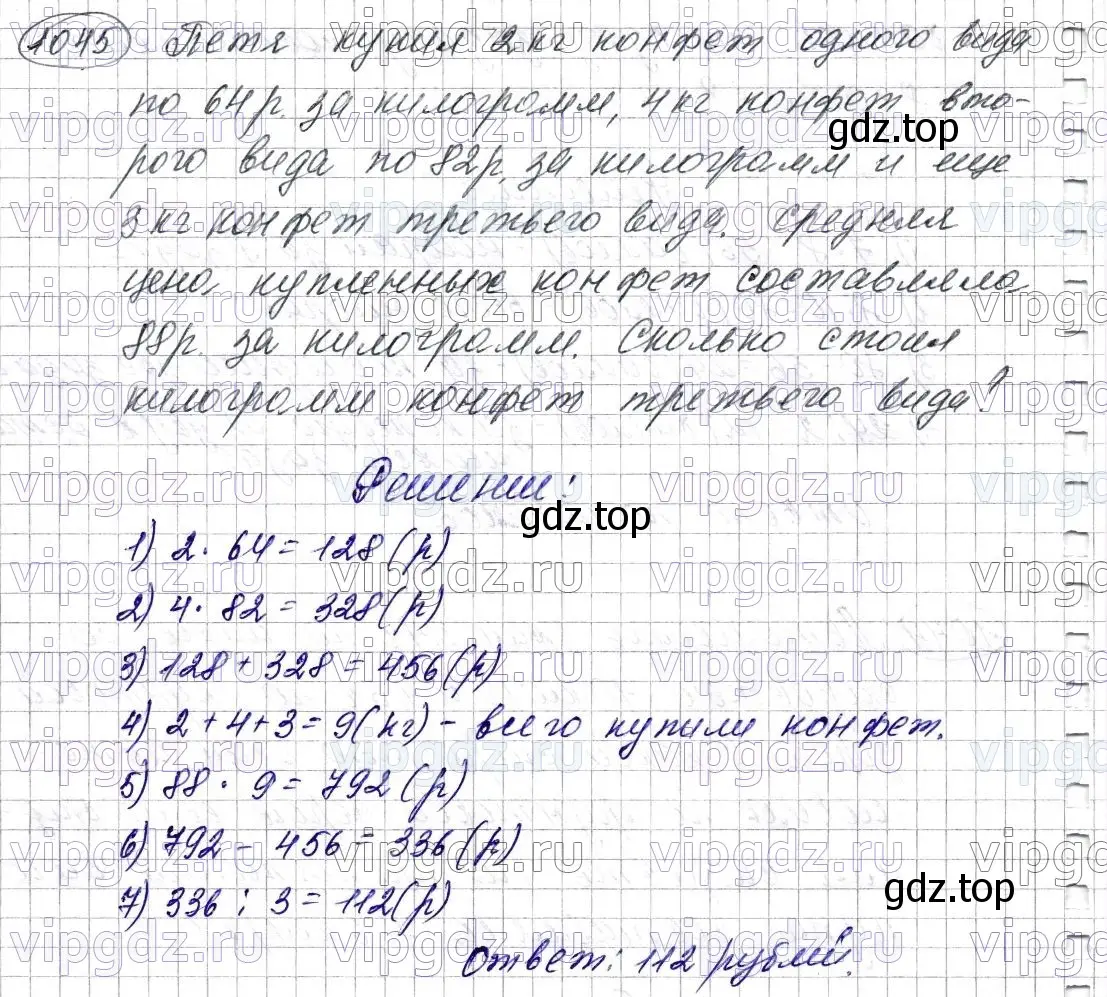 1045 Петя купил 2 кг конфет одного вида
по 64 р. за килограмм, 4 кг конфет вто-
рого вида по 82 р. за килограмм и еще
3 кг конфет третьего вида. Средняя
цена купленных конфет составляла
88 р. за килограмм. Сколько стоил
килограмм конфет третьего вида?
Решение:
1) 2 · 64 = 128 (р)
2) 4 · 82 = 328 (р)
3) 128 + 328 = 456 (р)
4) 2 + 4 + 3 = 9 (кг) - всего купили конфет.
5) 88 · 9 = 792 (р)
6) 792 - 456 = 336 (р)
7) 336 : 3 = 112 (р)
Ответ: 112 рублей.
gdz.top
gdz.top
gdz.top
vipgdz.ru